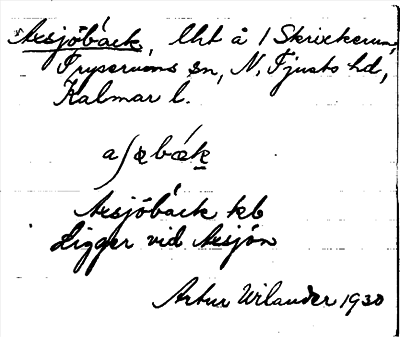 Axsjöbäck, lht å / Skrickerum,
Tryserums sn, N. Tjusts hd,
Kalmar l.
Axsjöbäck kb
Ligger vid Axsjön
Artur Wilander 1930